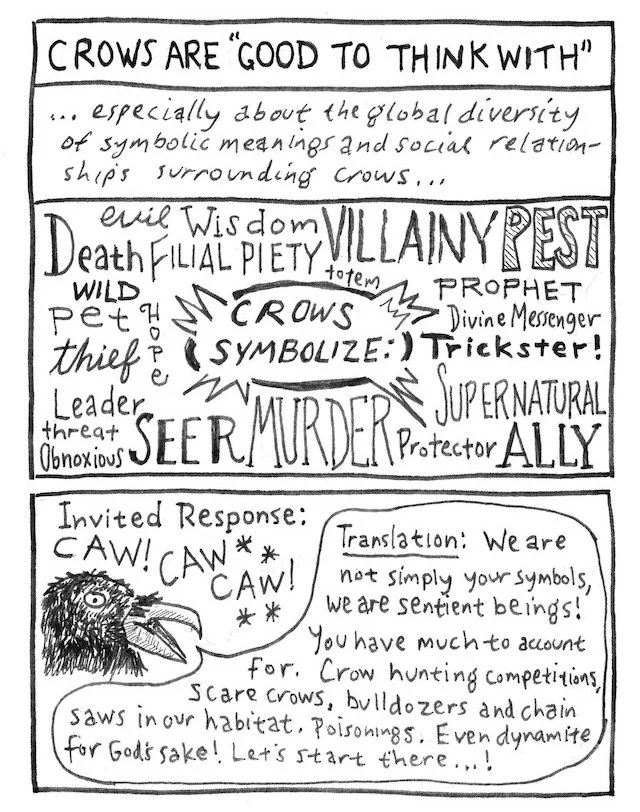 CROWS ARE "GOOD TO THINK WITH"
... especially about the global diversity
of symbolic meanings and social relation-
ship's surrounding crows...
evil Wisdom VILLAINY PEST
Death FILIAL PIETY
totem
WILD PROPHET
pet Hope CROWS Divine Messenger
thief (SYMBOLIZE:) Trickster!
Leader MURDER SUPERNATURAL
threat SEER Protector ALLY
Obnoxious
Invited Response:
CAW! CAW * *
CAW!
* *
Translation: We are
not simply your symbols,
we are sentient beings!
You have much to account
for. Crow hunting competitions,
scare crows, bulldozers and chain
saws in our habitat. Poisonings. Even dynamite
for God's sake! Let's start there...!